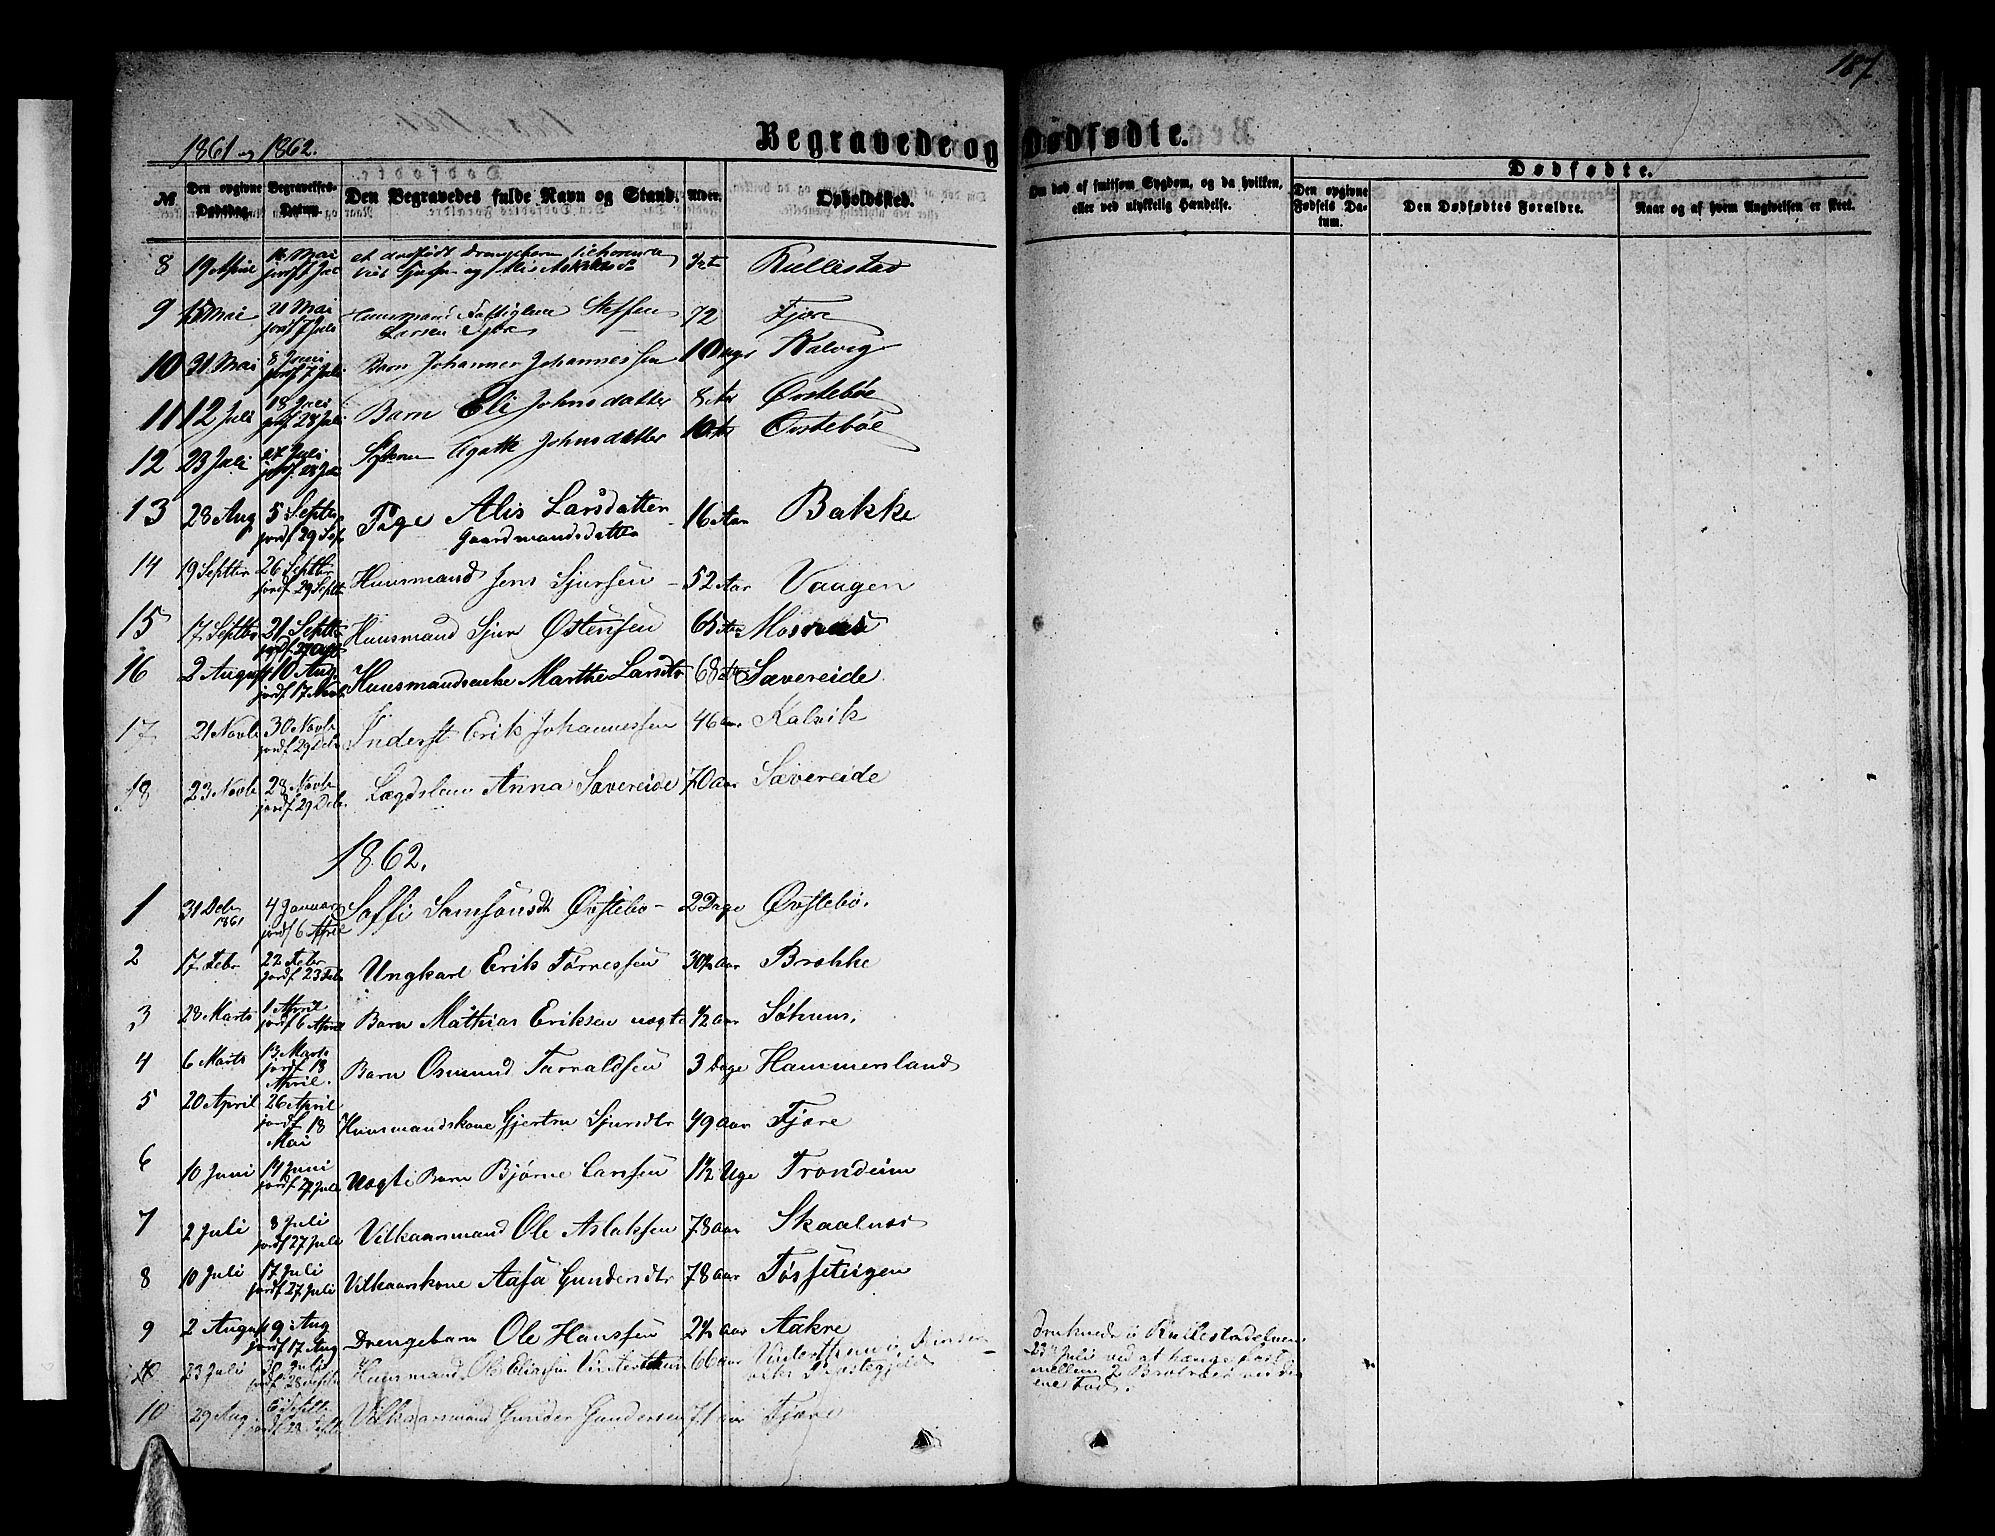 187.
1861 og 1862.
Begravede og Dødfødte.
№ Den opgivne Dødsdag. Begravelses-Datum. Den Begravedes fulde Navn og Stand. Alder. Opholdssted. Om død af smitsom Sygdom, og da hvilken, eller ved ulykkelig Hændelse. Dødfødte.
Den opgivne Fødsels Datum. Den Dødfødtes Forældre. Naar og af hvem Angivelsen er skeet.
8 19 April Mai jordf Jul et dødfødt Drengebarn Rullestad
9 15 Mai 21 Mai jordf 7 Juli Huusmand Steffen Larsen Fjære 72 Fjære
10 31 Mai 8 Juni jordf 7 Juli Barn Johannes Johannessen 10 Dage Kalvig
11 12 Juli 18 Juli jordf 28 Juli Barn Eli Johnsdatter 8 Aar Østebøe
12 23 Juli 27 Juli jordf 28 Juli Agathe Johnsdatter 10 Aar Østebøe
13 28 Aug 5 Septbr jordf 29 Sep Pige Alis Larsdatter Gaardmandsdatter 16 Aar Bakke
14 19 Septbr 26 Septbr jordf 29 Septbr Huusmand Jens Sjursen 52 Aar Vaagen
15 17 Septbr 21 Septbr jordf 29 Huusmand Sjur Østensen 65 Aar Mosnæs
16 2 August 10 Aug jordf 17 Huusmandsenke Marthe Larsdtr 68 Aar Sævereide
17 21 Novbr 30 Novbr jordf 29 Debr Inderst Erik Johannessen 46 aar Kalvik
18 23 Novbr 28 Novbr jordf 29 Debr Lægdslem Anna Sævereide 70 aar Sævereide
1862.
1 31 Debr 1861 4 Januar jordf 6 April Soffi Samsonsdt Øvstebø 2 Dage Øvstebø.
2 17 Febr 22 Febr jordf 23 Febr Ungkarl Erik Tørressen 30½ aar Brokke
3 28 Marts 1 April jordf 6 April Barn Mathias Eriksen uægte ½ aar
4 6 Marts 13 Marts jordf 13 April. Barn Osmund Tarraldsen 3 Dage Hammersland
5 20 April 26 April jordf 18 Mai Huusmandskone Gjertru Sjursdtr 49 aar Fjære
6 10 Juni 14 Juni jordf 27 Juli Uægte Barn Bjørne Larssen 1½ Uge Trondeim
7 2 Juli 8 Juli jordf 27 Juli Vilkaarsmand Ole Aslaksen 78 aar Skaalnæs
8 10 Juli 17 Juli jordf 27 Juli Vilkaarskone Aasa Gundersdtr 78 aar Fosseteigen
9 2 August 9 Aug jordf 17 Aug Drengebarn Ole Hanssen 2½ aar Aakre
10 23 Juli 30 Juli jordf 28 Huusmand Ole Eliassen Vinterthun 66 aar Vinterthun i Præstegjeld druknede i Rullestadelven
23de Juli ved at hænge fast
mellem 2 ved den
ene Fod.
10 29 Aug 6 Septbr jordf 28 Septbr Vilkaarsmand Gunder Gundersen 71 aar Fjære